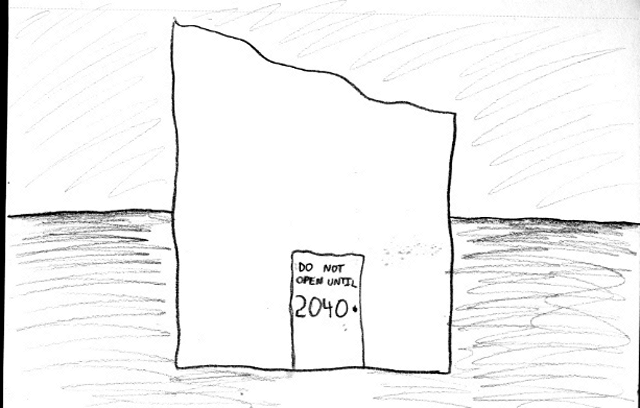 DO NOT
OPEN UNTIL
2040.